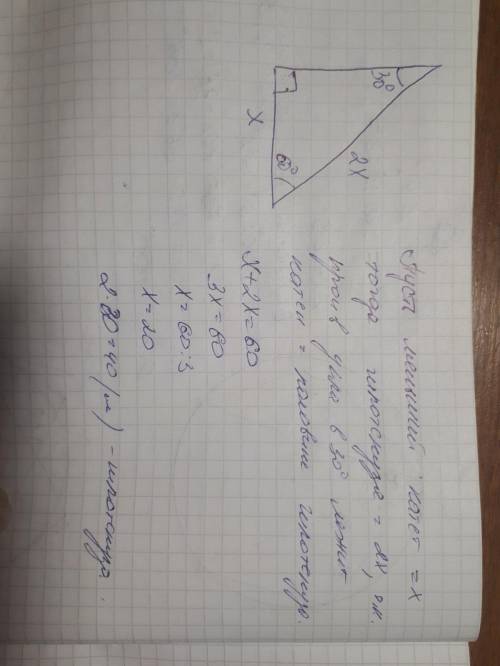 30°
60°
2x
x
Пусть меньший катет = x
тогда гипотенуза = 2x, т.к.
против угла в 30° лежит
катет = половине гипотенузы.
x+2x=60
3x=60
x=60:3
x=20
2·20=40 (см) - гипотенуза.